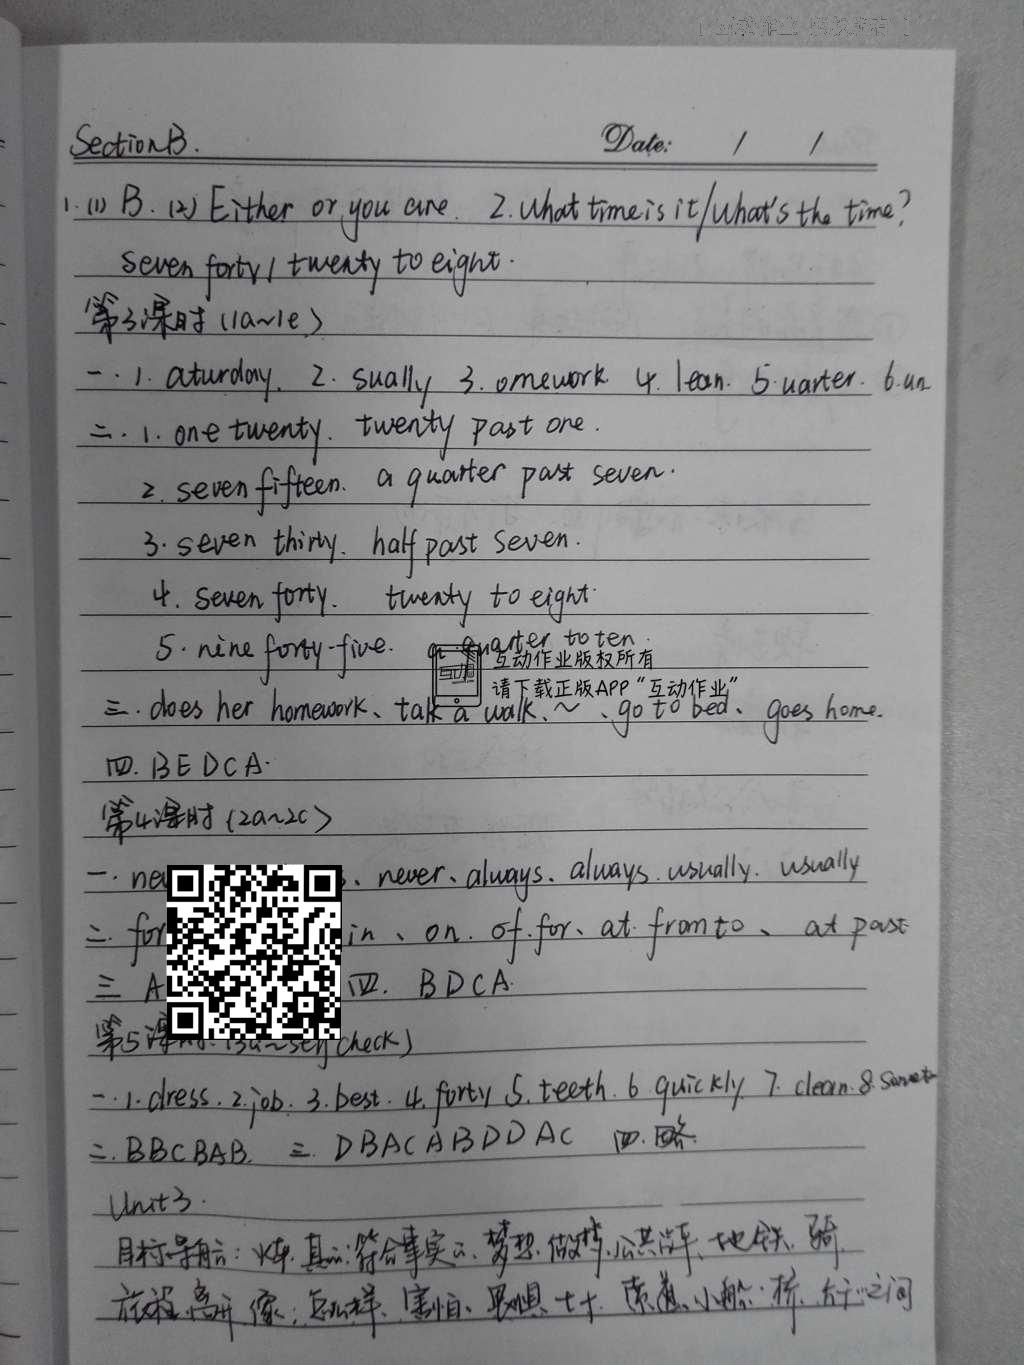 Section B.
Date: / /
1. (1) B. (2) Either or, you are. 2. What time is it/What's the time?
seven forty / twenty to eight.
第3课时 (1a~1e)
一. 1. aturday. 2. sually 3. omework 4. lean. 5. uarter. 6. un
二. 1. one twenty. twenty past one.
2. seven fifteen. a quarter past seven.
3. seven thirty. half past seven.
4. seven forty. twenty to eight.
5. nine forty-five. a quarter to ten.
互动作业版权所有
请下载正版APP“互动作业”
三. does her homework、talk a walk、~、go to bed、goes home.
四. B E D C A.
第4课时 (2a~2c)
一. never、always、always. usually. usually
二. for in、on. of. for、at. from to、at past
三 A 四. B D C A.
第5课时 check)
一. 1. dress. 2. job. 3. best. 4. forty 5. teeth. 6 quickly. 7. clean. 8.
二. B B C B A B. 三. D B A C A B D D A C 四. 略.
Unit 3.
目标导航: 火车. 真的;符合事实的、梦想. 做梦、公共汽车、地铁. 骑
旅程 离开 像; 怎么样、害怕、畏惧. 小船. 桥. 在…之间